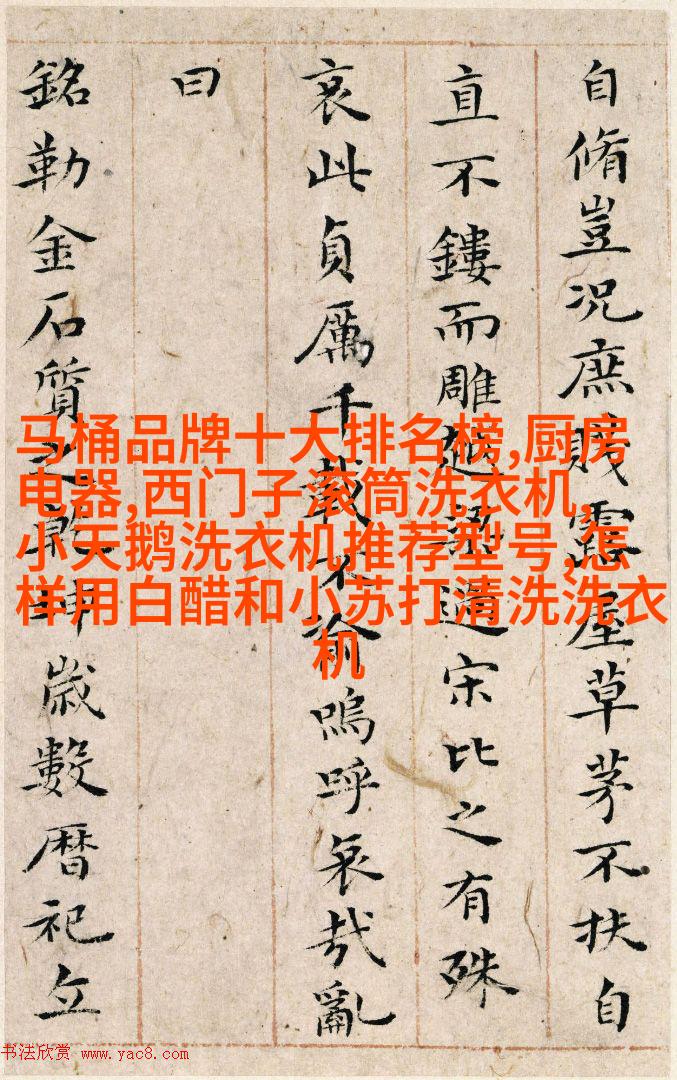 自脩豈況庶賤露屋草茅不扶自
直不鏤而雕越梁過宋比之有殊
哀此貞厲千載不渝嗚呼哀哉亂
曰
銘勒金石質之乾坤歲數暦祀立
马桶品牌十大排名榜,厨房
电器,西门子滚筒洗衣机,
小天鹅洗衣机推荐型号,怎
样用白醋和小苏打清洗洗衣
机
书法欣赏 www.yac8.com